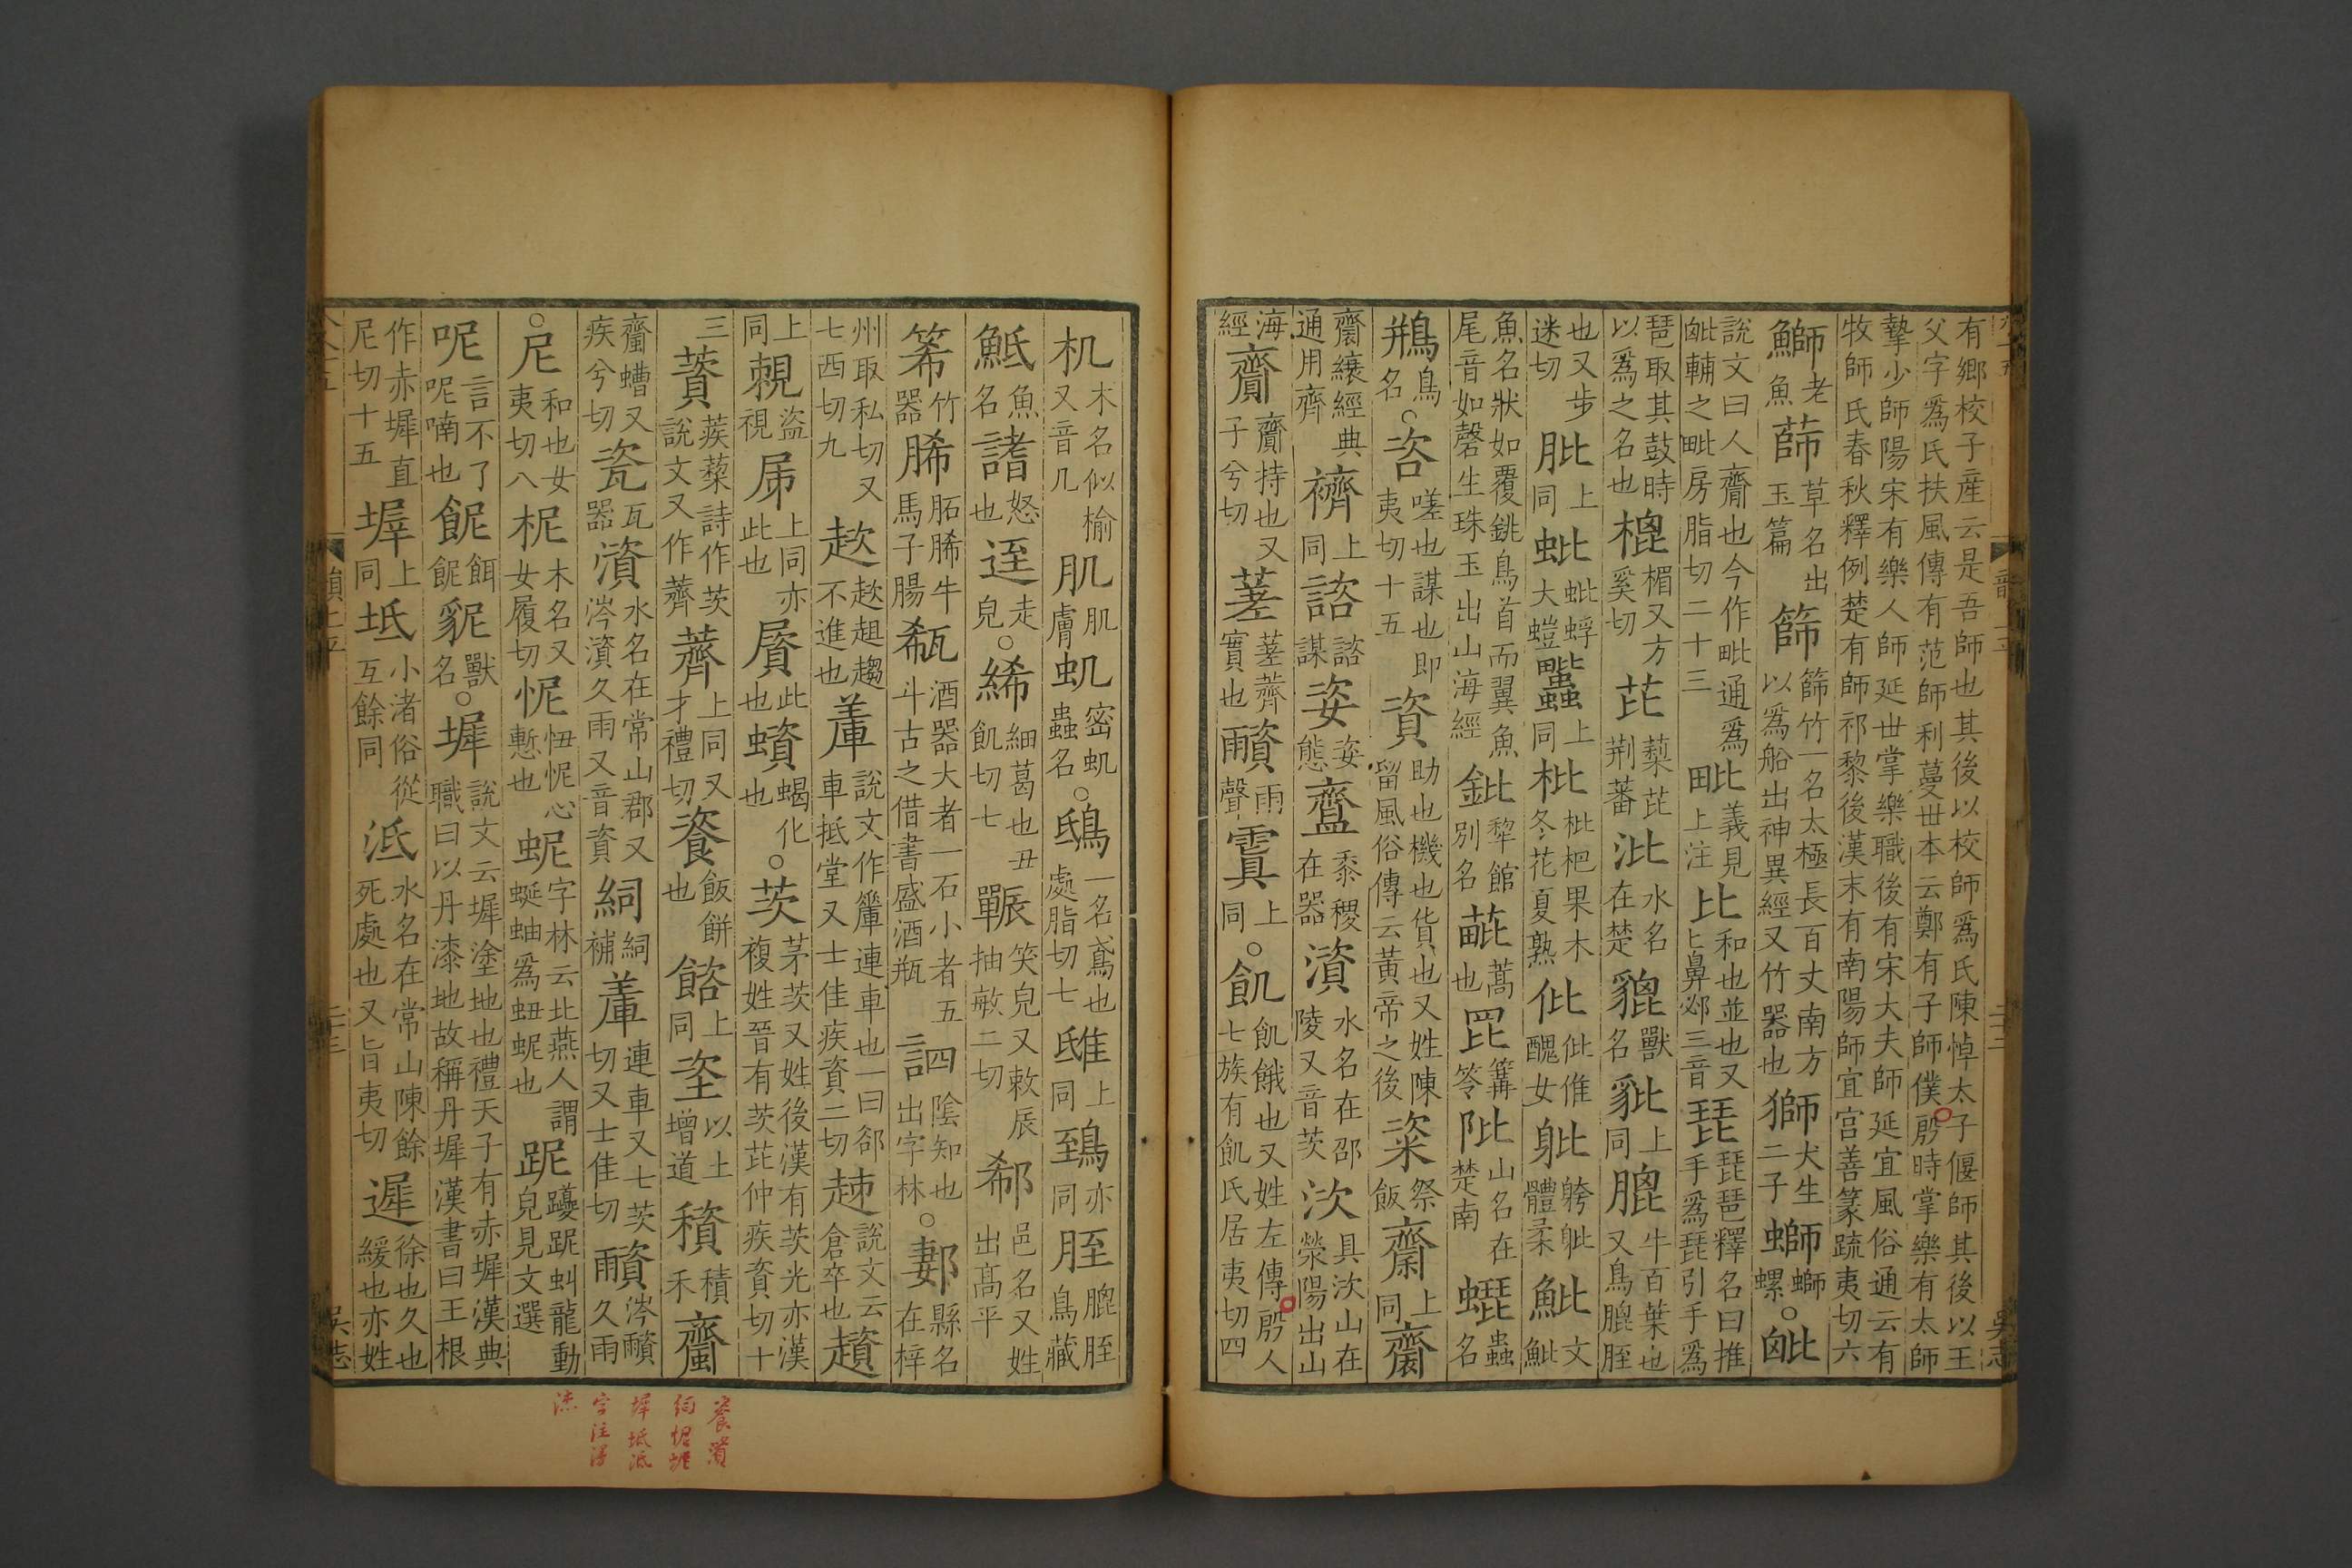 有鄉校子産云是吾師也其後以校師爲氏陳悼太子偃師其後以王
父字爲氏扶風傳有范師利蔓世本云鄭有子師僕殷時掌樂有太師
摯少師陽宋有樂人師延世掌樂職後有宋大夫師延宜風俗通云有
牧師氏春秋釋例楚有師祁黎後漢末有南陽師宜官善篆疏夷切六
鰤老魚 䔑草名出玉篇 篩篩竹一名太極長百丈南方以爲船出神異經又竹器也 獅犬生二子 螄螄螺○㲺
說文曰人齎也今作毗通爲毗輔之毗房脂切二十三 毗義見上注 比和也並也又匕鼻邲三音 琵琵琶釋名曰推手爲琵引手爲
琶取其鼓時以爲之名也 槐楣又方奚切 芘藜芘荆蕃 沘水名在楚 貔獸名 豼上同 膍牛百葉也又鳥膍胵
也又步迷切 肶上同 蚍蚍蜉大螘 蠶上同 枇枇杷果木冬花夏熟 仳仳倠醜女 躮躮䠸體柔 魮文魮
魚名狀如覆銚鳥首而翼魚尾音如磬生珠玉出山海經 鈚犂館別名 蓖蒿也 笓篝笭 阰山名在楚南 螕蟲名
鴉鳥名○咨嗟也謀也即夷切十五 資助也機也貨也又姓陳留風俗傳云黃帝之後 粢祭飯 齋上同 齌
齌縗經典通用齊 䄢上同 諮諮謀 姿姿態 齍黍稷在器 澬水名在邵陵又音茨 㳄具㳄山在滎陽出山
海經 齎齎持也又子兮切 䓱䓱薺實也 䨏雨聲 䨏上同○飢飢餓也又姓左傳殷人七族有飢氏居夷切四
机木名似榆又音几 肌肌膚 虮密虮蟲名○鴟一名鳶也處脂切七 䧴上同 鵄亦同 胵膍胵鳥藏
鮨魚名 䜄怒也 䟡走皃○絺細葛也丑飢切七 辴笑皃又敕辰抽敏二切 郗邑名又姓出高平
䇓竹器 脪䏝脪牛馬子腸 瓻酒器大者一石小者五斗古之借書盛酒瓶 䛵陰知也出字林○郪縣名在梓
州取私切又七西切九 趑趑趄趨不進也 䡨說文作䡨連車也一曰郤車抵堂又士佳疾資二切 𧺼說文云倉卒也 趲
上同 覰盜視 㞖上同亦此也 㞖此也 蠀蝎化也○茨茅茨又姓後漢有茨光亦漢複姓晉有茨芘仲疾資切十
三 薋蒺蔾詩作茨說文又作薺 薺上同又才禮切 餈飯餅也 䭣上同 垐以土增道 䆅積禾 蠐
蠐螬又疾兮切 瓷瓦器 澬水名在常山郡又涔澬久雨又音資 絧絧補 䡨連車又七茨切又士佳切 䨏涔䨏久雨
○尼和也女夷切八 柅木名又女履切 怩忸怩心慙也 蚭字林云北燕人謂蜒蚰爲蚭蚭也 跜躨跜虯龍動皃見文選
呢言不了呢喃也 䭲餌䭲 貎獸名○墀說文云墀塗地也禮天子有赤墀漢典職曰以丹漆地故稱丹墀漢書曰王根
作赤墀直尼切十五 墀上同 坻小渚俗從互餘同 泜水名在常山陳餘死處也又旨夷切 遲徐也久也緩也亦姓